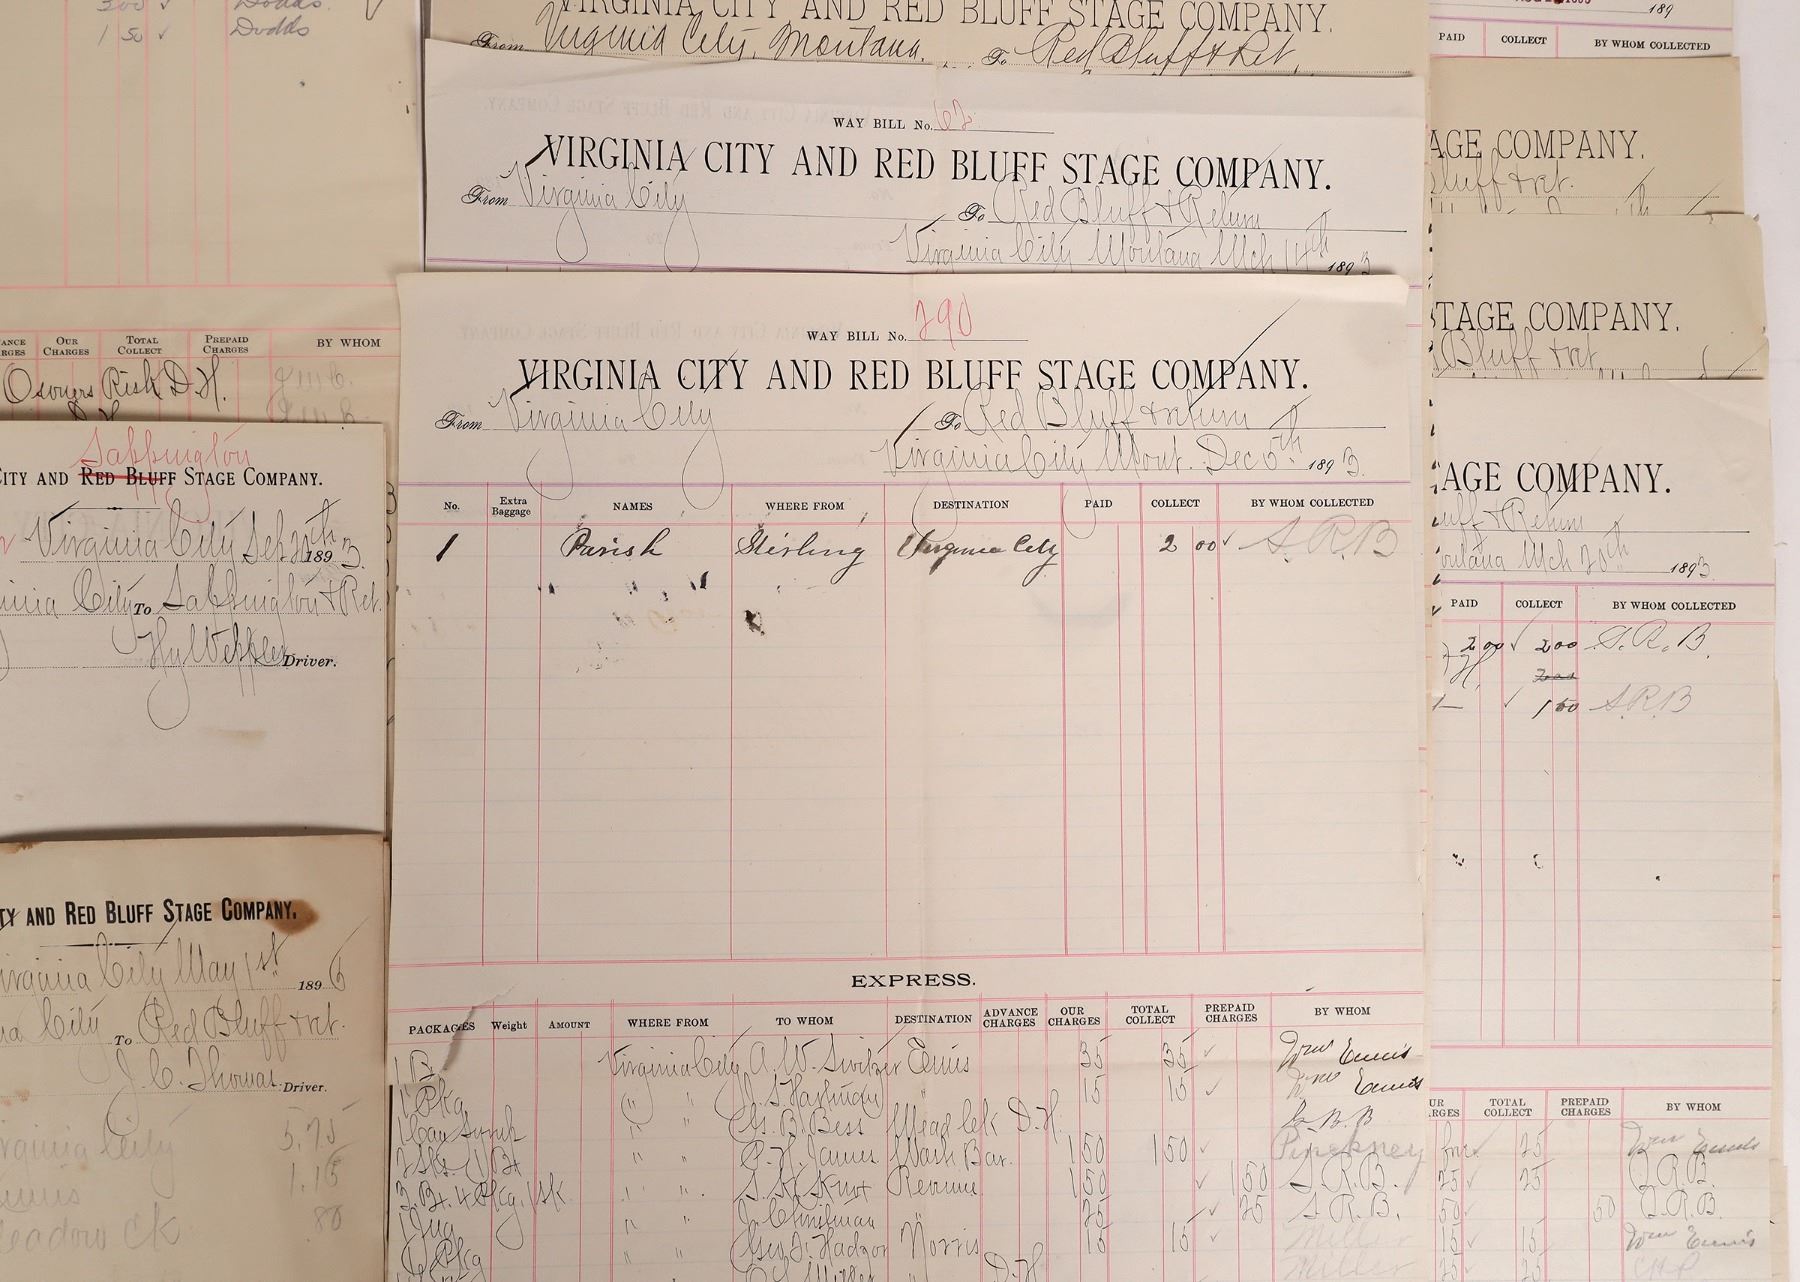 300 ✓ Dodds.
1 50 ✓ Dodds
ANCE RGES OUR CHARGES TOTAL COLLECT PREPAID CHARGES BY WHOM
Owners Risk D.H.
D.H.
Sappington
CITY AND RED BLUFF STAGE COMPANY.
Virginia City Sep 20th 1893.
inia City To Sappington & Ret.
Driver.
TY AND RED BLUFF STAGE COMPANY.
Virginia City May 1st 1896
ia City To Red Bluff & ret.
J. C. Thomas Driver.
rginia City 5.75
Ennis 1.15
Meadow Ck .80
VIRGINIA CITY AND RED BLUFF STAGE COMPANY.
From Virginia City, Montana. To Red Bluff & Ret.
WAY BILL No. 62
VIRGINIA CITY AND RED BLUFF STAGE COMPANY.
From Virginia City To Red Bluff & Return
Virginia City Montana Mch 14th 1893
WAY BILL No. 290
VIRGINIA CITY AND RED BLUFF STAGE COMPANY.
From Virginia City To Red Bluff & return
Virginia City Mont. Dec 5th 1893.
No. Extra Baggage NAMES WHERE FROM DESTINATION PAID COLLECT BY WHOM COLLECTED
1 Parish Sterling Virginia City 2 00 ✓ S.R.B
EXPRESS.
PACKAGES Weight AMOUNT WHERE FROM TO WHOM DESTINATION ADVANCE CHARGES OUR CHARGES TOTAL COLLECT PREPAID CHARGES BY WHOM
1 B Virginia City A. W. Switzer Ennis 35 35 ✓ Wm Ennis
1 Pkg " " 15 15 ✓ Wm Ennis
1 Can " " Geo. B. Bess Mead Cek D.H.
" " James Wash Bar. 1 50 1 50 ✓ Pinckney
" " Knox Revenue 1 50 ✓ 1 50 S.R.B.
1 Jug " " J. Chrisman 25 ✓ 25 S.R.B.
Pkg " " Geo. Norris 15 15 ✓ Miller
D.H. Miller
189
PAID COLLECT BY WHOM COLLECTED
AGE COMPANY.
Bluff & ret.
STAGE COMPANY.
Bluff & ret.
AGE COMPANY.
uff & Return
ontana Mch 20th 1893
PAID COLLECT BY WHOM COLLECTED
2 00 ✓ 2 00 S.R.B.
1 50 S.R.B
UR ARGES TOTAL COLLECT PREPAID CHARGES BY WHOM
25 Wm Ennis
25 ✓ 25 S.R.B.
50 ✓ 50 S.R.B.
15 ✓ 15 Wm Ennis
25 25